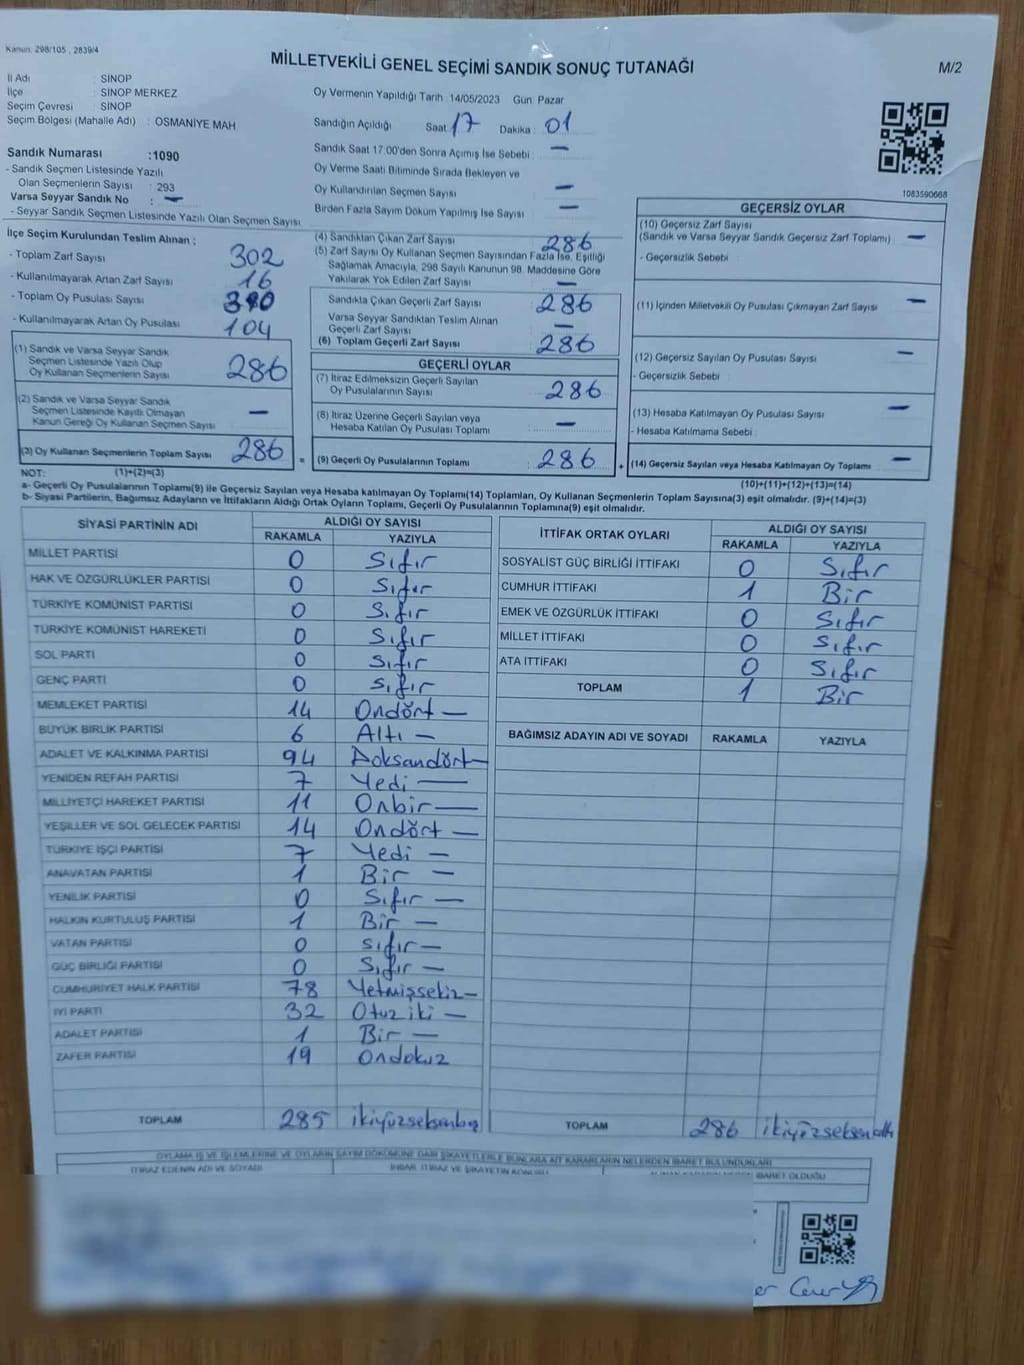 Kanun: 298/105 , 2839/4
MİLLETVEKİLİ GENEL SEÇİMİ SANDIK SONUÇ TUTANAĞI
M/2
İl Adı : SİNOP
İlçe : SİNOP MERKEZ
Seçim Çevresi : SİNOP
Seçim Bölgesi (Mahalle Adı) : OSMANİYE MAH
Sandık Numarası :1090
- Sandık Seçmen Listesinde Yazılı
Olan Seçmenlerin Sayısı : 293
Varsa Seyyar Sandık No : —
- Seyyar Sandık Seçmen Listesinde Yazılı Olan Seçmen Sayısı
Oy Vermenin Yapıldığı Tarih : 14/05/2023 Gün: Pazar
Sandığın Açıldığı Saat: 17 Dakika : 01
Sandık Saat 17:00'den Sonra Açımış İse Sebebi : —
Oy Verme Saati Bitiminde Sırada Bekleyen ve
Oy Kullandırılan Seçmen Sayısı —
Birden Fazla Sayım Döküm Yapılmış İse Sayısı —
1083590668
İlçe Seçim Kurulundan Teslim Alınan :
- Toplam Zarf Sayısı 302
- Kullanılmayarak Artan Zarf Sayısı 16
- Toplam Oy Pusulası Sayısı 390
- Kullanılmayarak Artan Oy Pusulası 104
(1) Sandık ve Varsa Seyyar Sandık
Seçmen Listesinde Yazılı Olup
Oy Kullanan Seçmenlerin Sayısı 286
(2) Sandık ve Varsa Seyyar Sandık
Seçmen Listesinde Kayıtlı Olmayan
Kanun Gereği Oy Kullanan Seçmen Sayısı —
(3) Oy Kullanan Seçmenlerin Toplam Sayısı 286 =
(4) Sandıktan Çıkan Zarf Sayısı 286
(5) Zarf Sayısı Oy Kullanan Seçmen Sayısından Fazla İse, Eşitliği
Sağlamak Amacıyla, 298 Sayılı Kanunun 98. Maddesine Göre
Yakılarak Yok Edilen Zarf Sayısı : —
Sandıkta Çıkan Geçerli Zarf Sayısı : 286
Varsa Seyyar Sandıktan Teslim Alınan
Geçerli Zarf Sayısı —
(6) Toplam Geçerli Zarf Sayısı : 286
GEÇERLİ OYLAR
(7) İtiraz Edilmeksizin Geçerli Sayılan
Oy Pusulalarının Sayısı : 286
(8) İtiraz Üzerine Geçerli Sayılan veya
Hesaba Katılan Oy Pusulası Toplamı : —
(9) Geçerli Oy Pusulalarının Toplamı : 286 +
GEÇERSİZ OYLAR
(10) Geçersiz Zarf Sayısı
(Sandık ve Varsa Seyyar Sandık Geçersiz Zarf Toplamı) —
- Geçersizlik Sebebi :
(11) İçinden Milletvekili Oy Pusulası Çıkmayan Zarf Sayısı —
(12) Geçersiz Sayılan Oy Pusulası Sayısı —
- Geçersizlik Sebebi :
(13) Hesaba Katılmayan Oy Pusulası Sayısı —
- Hesaba Katılmama Sebebi :
(14) Geçersiz Sayılan veya Hesaba Katılmayan Oy Toplamı —
NOT: (1)+(2)=(3)
(10)+(11)+(12)+(13)=(14)
a- Geçerli Oy Pusulalarının Toplamı(9) ile Geçersiz Sayılan veya Hesaba katılmayan Oy Toplamı(14) Toplamları, Oy Kullanan Seçmenlerin Toplam Sayısına(3) eşit olmalıdır. (9)+(14)=(3)
b- Siyasi Partilerin, Bağımsız Adayların ve İttifakların Aldığı Ortak Oyların Toplamı, Geçerli Oy Pusulalarının Toplamına(9) eşit olmalıdır.
SİYASİ PARTİNİN ADI ALDIĞI OY SAYISI
RAKAMLA YAZIYLA
MİLLET PARTİSİ 0 Sıfır
HAK VE ÖZGÜRLÜKLER PARTİSİ 0 Sıfır
TÜRKİYE KOMÜNİST PARTİSİ 0 Sıfır
TÜRKİYE KOMÜNİST HAREKETİ 0 Sıfır
SOL PARTİ 0 Sıfır
GENÇ PARTİ 0 Sıfır
MEMLEKET PARTİSİ 14 Ondört —
BÜYÜK BİRLİK PARTİSİ 6 Altı —
ADALET VE KALKINMA PARTİSİ 94 Doksandört —
YENİDEN REFAH PARTİSİ 7 Yedi —
MİLLİYETÇİ HAREKET PARTİSİ 11 Onbir —
YEŞİLLER VE SOL GELECEK PARTİSİ 14 Ondört —
TÜRKİYE İŞÇİ PARTİSİ 7 Yedi —
ANAVATAN PARTİSİ 1 Bir —
YENİLİK PARTİSİ 0 Sıfır —
HALKIN KURTULUŞ PARTİSİ 1 Bir —
VATAN PARTİSİ 0 Sıfır —
GÜÇ BİRLİĞİ PARTİSİ 0 Sıfır —
CUMHURİYET HALK PARTİSİ 78 Yetmişsekiz —
İYİ PARTİ 32 Otuz iki —
ADALET PARTİSİ 1 Bir —
ZAFER PARTİSİ 19 Ondokuz
TOPLAM 285 ikiyüzseksenbeş
İTTİFAK ORTAK OYLARI ALDIĞI OY SAYISI
RAKAMLA YAZIYLA
SOSYALİST GÜÇ BİRLİĞİ İTTİFAKI 0 Sıfır
CUMHUR İTTİFAKI 1 Bir
EMEK VE ÖZGÜRLÜK İTTİFAKI 0 Sıfır
MİLLET İTTİFAKI 0 Sıfır
ATA İTTİFAKI 0 Sıfır
TOPLAM 1 Bir
BAĞIMSIZ ADAYIN ADI VE SOYADI RAKAMLA YAZIYLA
TOPLAM 286 ikiyüzseksenaltı
OYLAMA İŞ VE İŞLEMLERİNE VE OYLARIN SAYIM DÖKÜMÜNE DAİR ŞİKAYETLERLE BUNLARA AİT KARARLARIN NELERDEN İBARET BULUNDUKLARI
İTİRAZ EDENİN ADI VE SOYADI İHBAR, İTİRAZ VE ŞİKAYETİN KONUSU İBARET OLDUĞU